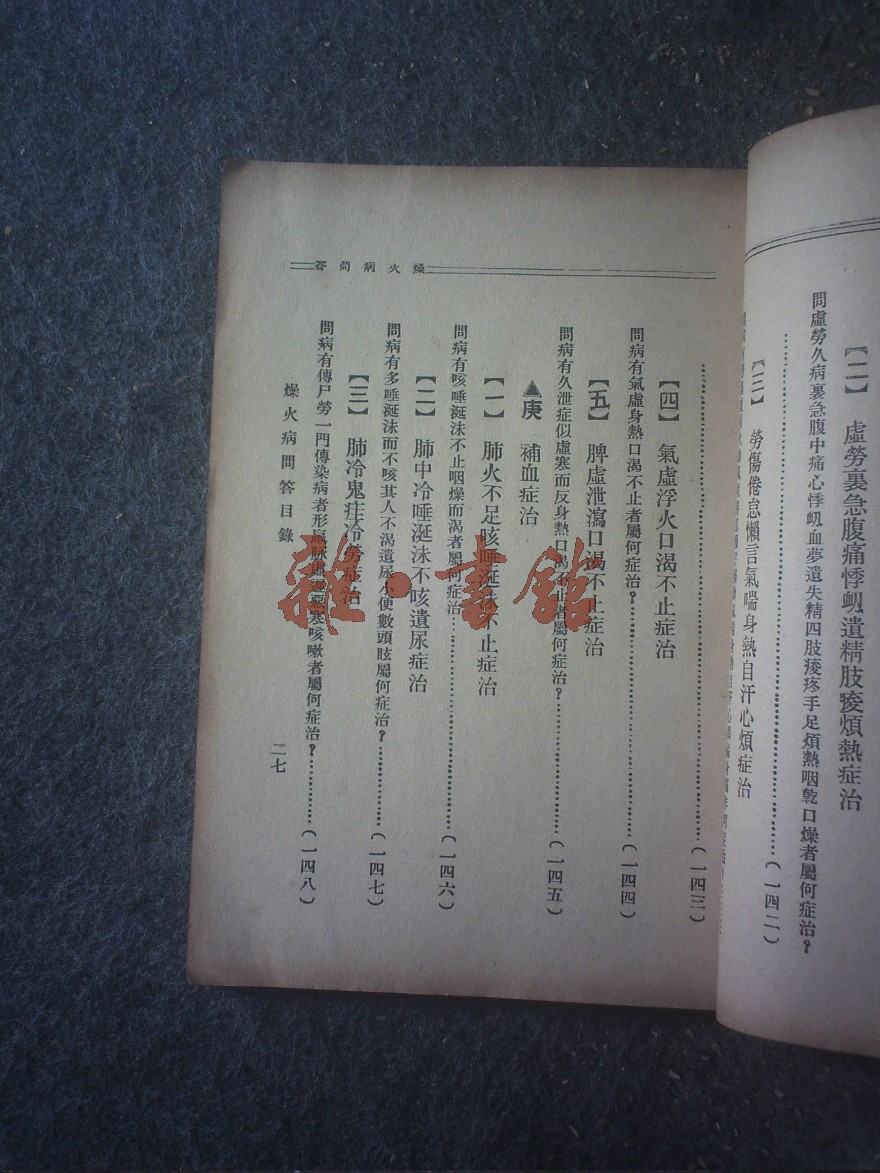 【二】　虛勞裏急腹痛悸衂遺精肢痠煩熱症治
問虛勞久病裏急腹中痛心悸衂血夢遺失精四肢痠疼手足煩熱咽乾口燥者屬何症治？
……（一四二）
【三】　勞傷倦怠懶言氣喘身熱自汗心煩症治
燥火病問答
……（一四三）
【四】　氣虛浮火口渴不止症治
問病有氣虛身熱口渴不止者屬何症治？……（一四四）
【五】　脾虛泄瀉口渴不止症治
問病有久泄症似虛寒而反身熱口渴不止者屬何症治？……（一四五）
▲庚　補血症治
【一】　肺火不足咳唾涎沫不止症治
問病有咳唾涎沫不止咽燥而渴者屬何症治……（一四六）
【二】　肺中冷唾涎沫不咳遺尿症治
問病有多唾涎沫而不咳其人不渴遺尿小便數頭眩屬何症治？……（一四七）
【三】　肺冷鬼疰冷勞症治
問病有傳尸勞一門傳染病者形羸脉虛惡寒咳嗽者屬何症治？……（一四八）
燥火病問答目錄
二七
雜·書館